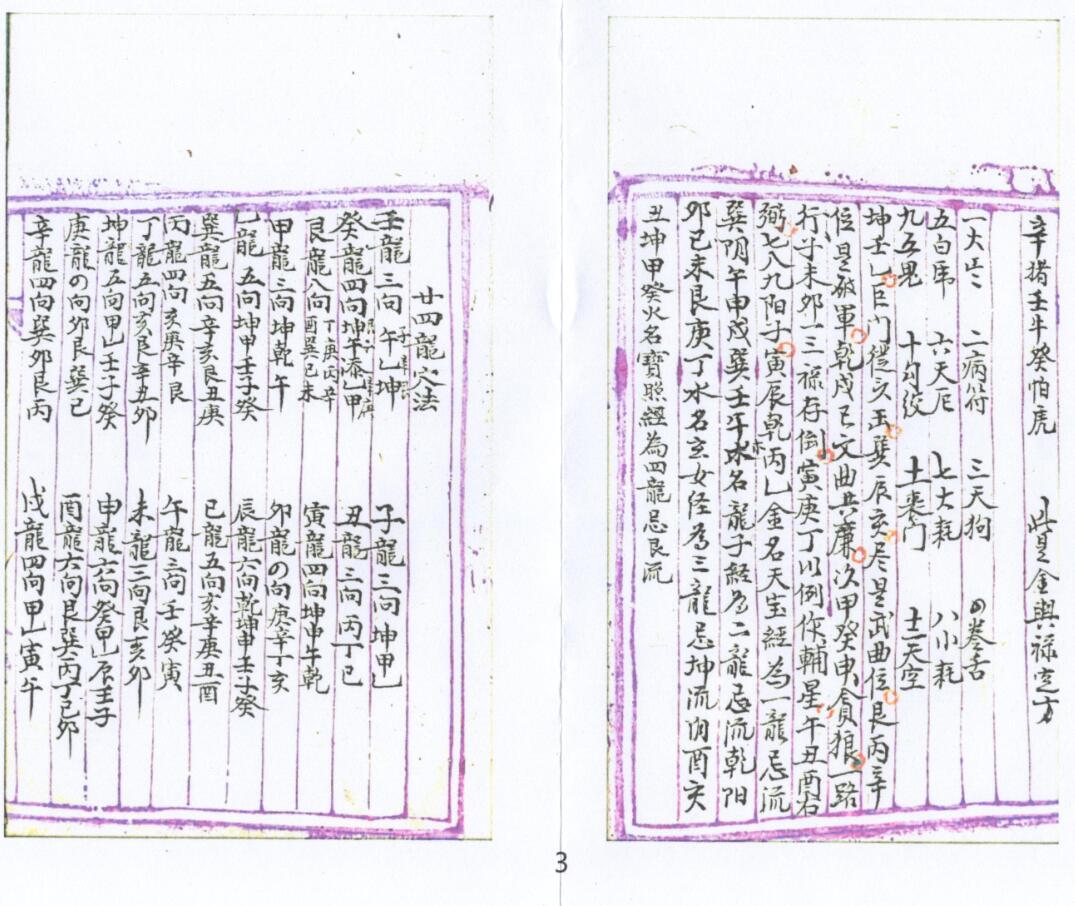 辛猪壬牛癸怕虎 此是金與禄空方
一大亡 二病符 三天狗 四卷舌
五白虎 六天厄 七大耗 八小耗
九五鬼 十勾絞 十二天空
坤壬乙巨門從头出巽辰亥尽是武曲位艮丙辛
位是破軍乾戌巳文曲共廉次甲癸申貪狼一路
行子未卯一三禄存倒寅庚丁以例作輔星午丑酉右
弼七八九阳子寅辰乾丙乙金名天宝經為一龍忌流
巽阴午申戌巽壬辛水名龍子經為二龍忌流乾阳
卯巳未艮庚丁水名玄女经為三龍忌坤流阴酉亥
丑坤甲癸火名寶照經為四龍忌艮流
廿四龍穴法
壬龍三向午乙坤 子龍三向坤甲乙
癸龍四向坤午乙甲 丑龍三向丙丁巳
艮龍八向丁庚丙辛酉巽巳未 寅龍四向坤申午乾
甲龍三向坤乾午 卯龍の向庚辛丁亥
乙龍五向坤申壬子癸 辰龍六向乾坤申壬子癸
巽龍五向辛亥艮丑庚 巳龍五向亥辛庚丑酉
丙龍四向亥庚辛艮 午龍三向壬癸寅
丁龍五向亥艮辛丑卯 未龍三向艮亥卯
坤龍五向甲乙壬子癸 申龍六向癸甲乙辰壬子
庚龍の向卯艮巽巳 酉龍六向艮巽丙丁巳卯
辛龍四向巽卯艮丙 戌龍四向甲乙寅午
3